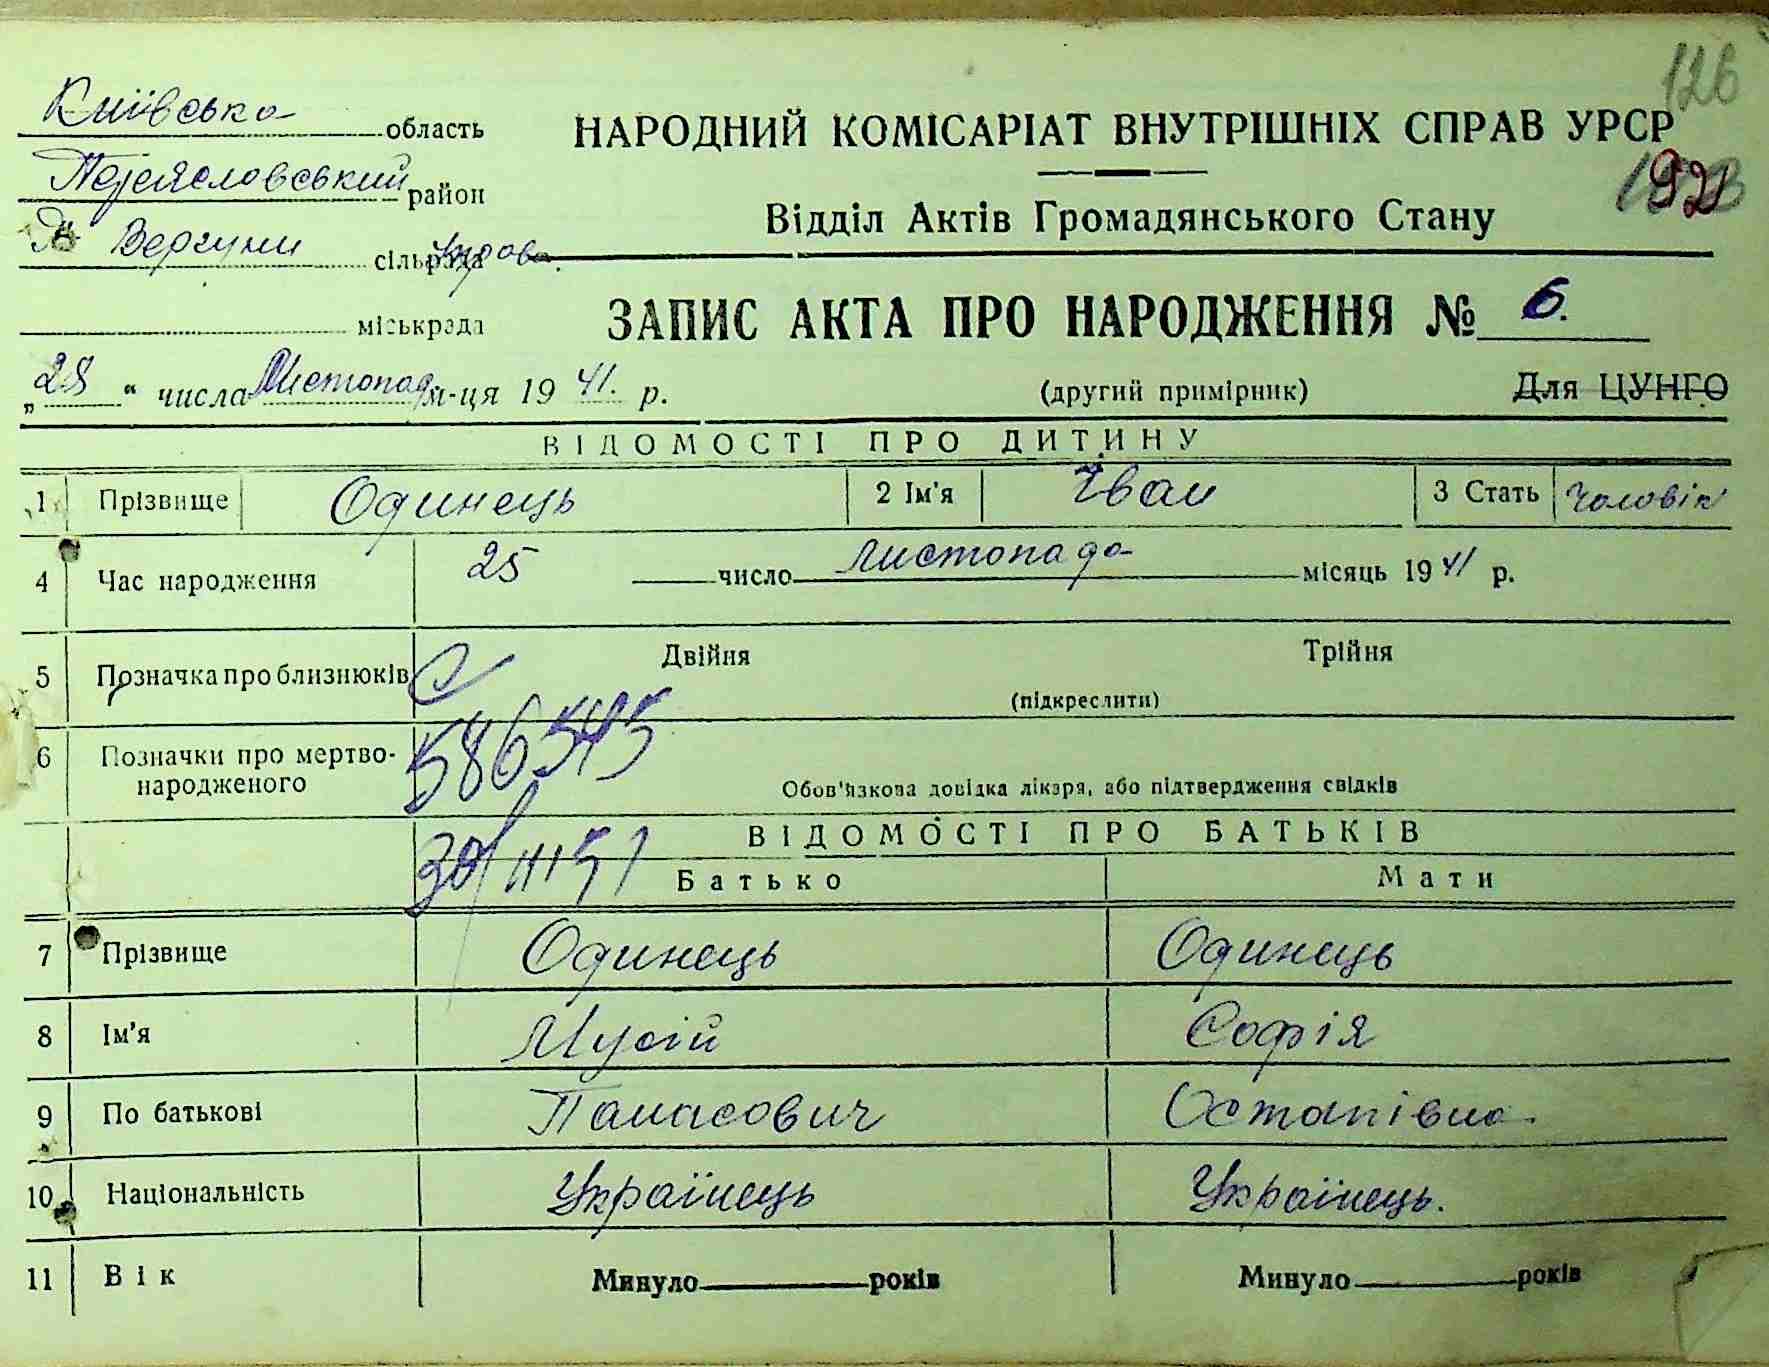 126
Київська область
НАРОДНИЙ КОМІСАРІАТ ВНУТРІШНІХ СПРАВ УРСР
Переяславський район
92
Відділ Актів Громадянського Стану
Вергуни сільрада управа.
ЗАПИС АКТА ПРО НАРОДЖЕННЯ № 6.
міськрада
„28“ числа Листопад м-ця 19 41. р.
(другий примірник)
Для ЦУНГО
ВІДОМОСТІ ПРО ДИТИНУ
1 Прізвище Одинець 2 Ім'я Іван 3 Стать Чоловік
4 Час народження 25 число листопада місяць 19 41 р.
5 Позначка про близнюків Двійня Трійня
(підкреслити)
6 Позначки про мертво-
народженого
586545
Обов'язкова довідка лікаря, або підтвердження свідків
ВІДОМОСТІ ПРО БАТЬКІВ
30/III 51
Батько Мати
7 Прізвище Одинець Одинець
8 Ім'я Мусій Софія
9 По батькові Панасович Остапівна.
10 Національність Українець Українець.
11 Вік Минуло років Минуло років